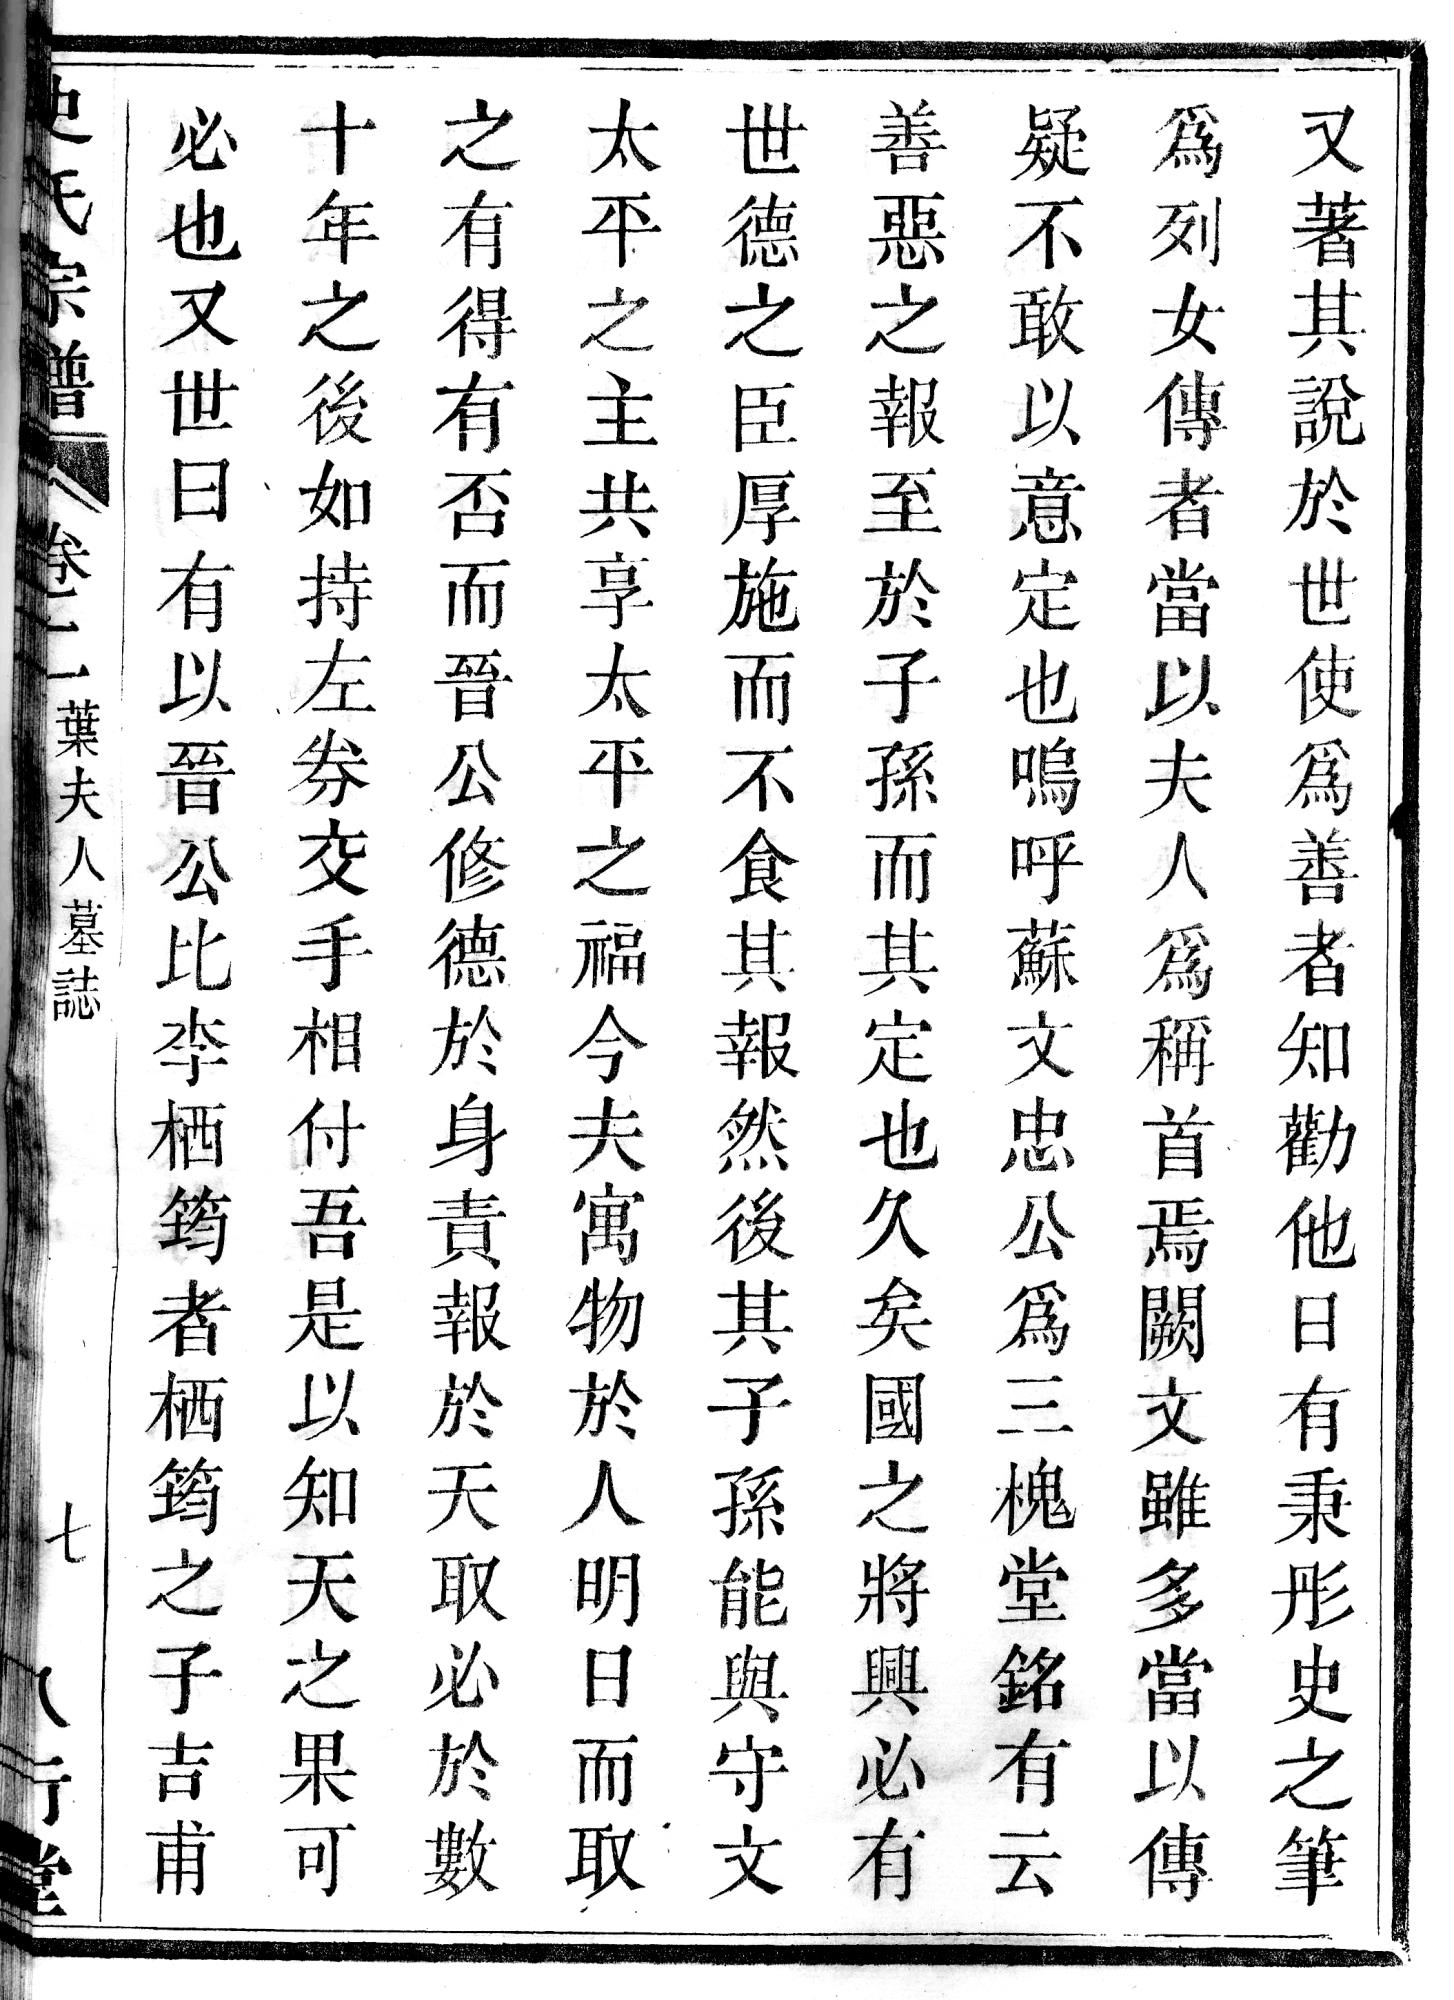 又著其說於世使爲善者知勸他日有秉彤史之筆
爲列女傳者當以夫人爲稱首焉闕文雖多當以傳
疑不敢以意定也嗚呼蘇文忠公爲三槐堂銘有云
善惡之報至於子孫而其定也久矣國之將興必有
世德之臣厚施而不食其報然後其子孫能與守文
太平之主共享太平之福今夫寓物於人明日而取
之有得有否而晉公修德於身責報於天取必於數
十年之後如持左券交手相付吾是以知天之果可
必也又世曰有以晉公比李栖筠者栖筠之子吉甫
史氏宗譜
卷二
葉夫人墓誌
七
八行堂